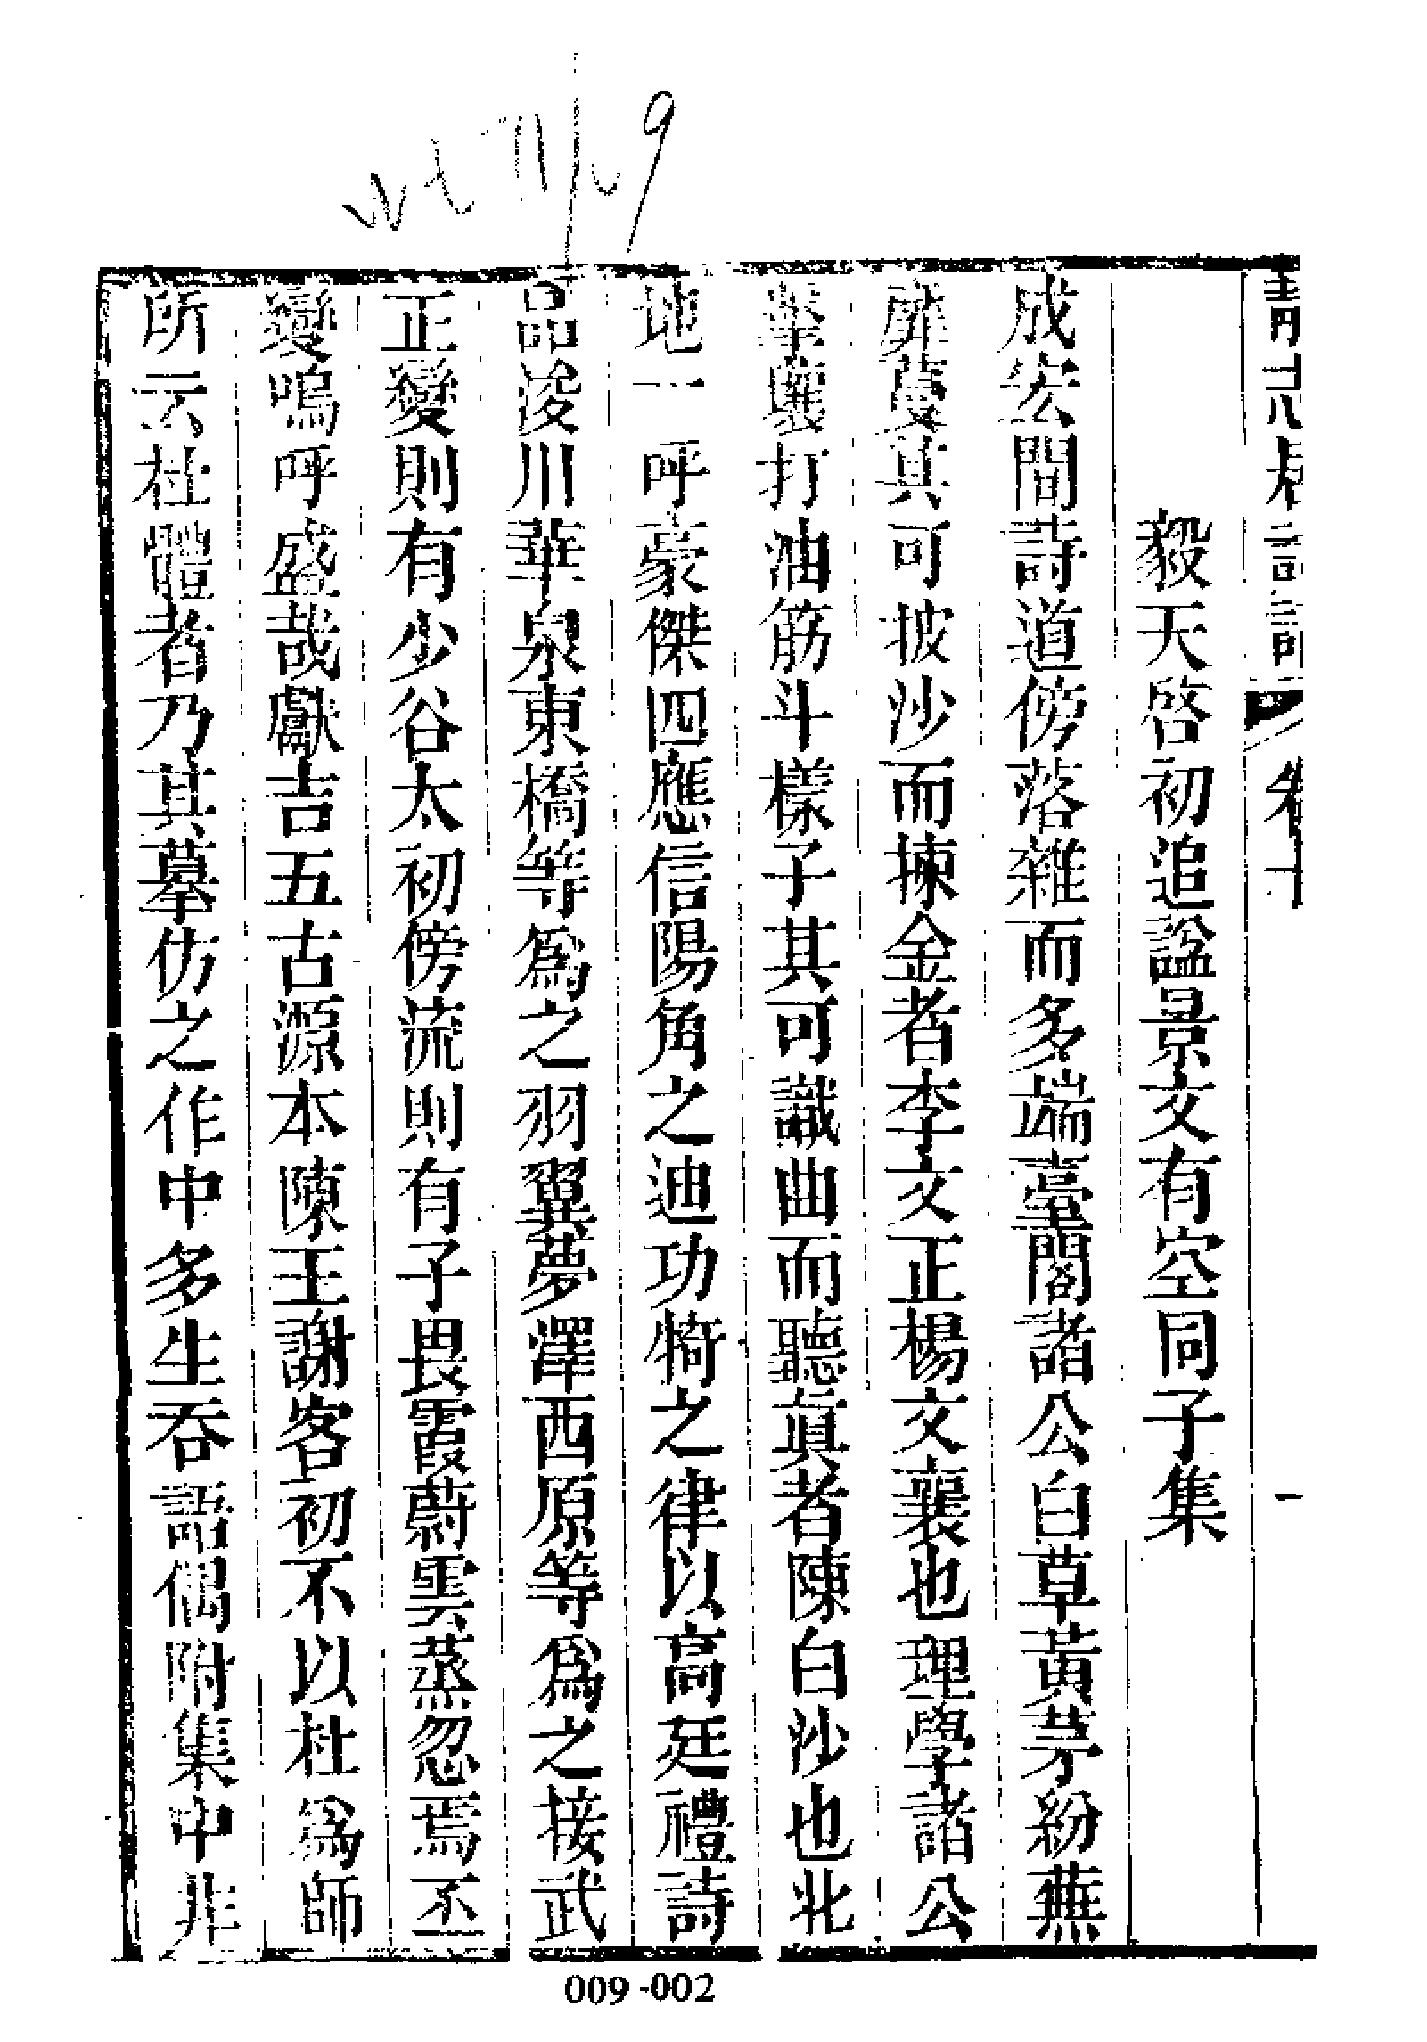 靜志居詩話 卷十 一
毅天啓初追諡景文有空同子集
成宏間詩道傍落雜而多端臺閣諸公白草黃茅紛蕪
靡蔓其可披沙而揀金者李文正楊文襄也理學諸公
擊壤打油筋斗樣子其可識曲而聽眞者陳白沙也北
地一呼豪傑四應信陽角之迪功犄之律以高廷禮詩
品浚川華泉東橋等爲之羽翼夢澤西原等爲之接武
正變則有少谷太初傍流則有子畏霞蔚雲蒸忽焉丕
變嗚呼盛哉獻吉五古源本陳王謝客初不以杜爲師
所云杜體者乃其摹仿之作中多生吞語偶附集中非
009-002